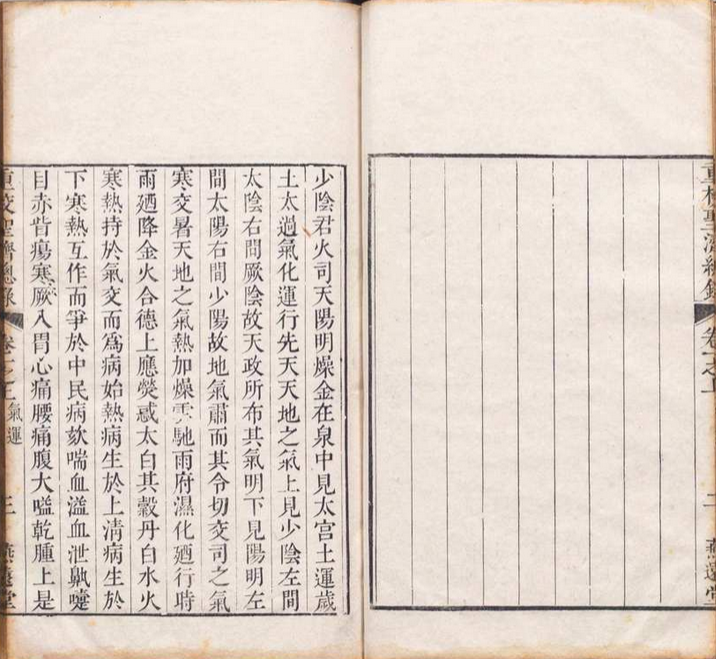 重校聖濟總錄
卷一之上
二
燕遠堂
少陰君火司天陽明燥金在泉中見太宮土運歲
土太過氣化運行先天天地之氣上見少陰左間
太陰右間厥陰故天政所布其氣明下見陽明左
間太陽右間少陽故地氣肅而其令切交司之氣
寒交暑天地之氣熱加燥雲馳雨府濕化廼行時
雨廼降金火合德上應熒惑太白其穀丹白水火
寒熱持於氣交而爲病始熱病生於上清病生於
下寒熱互作而爭於中民病欬喘血溢血泄鼽嚏
目赤眥瘍寒厥入胃心痛腰痛腹大嗌乾腫上是
重校聖濟總錄
卷一之上 氣運
三
燕遠堂